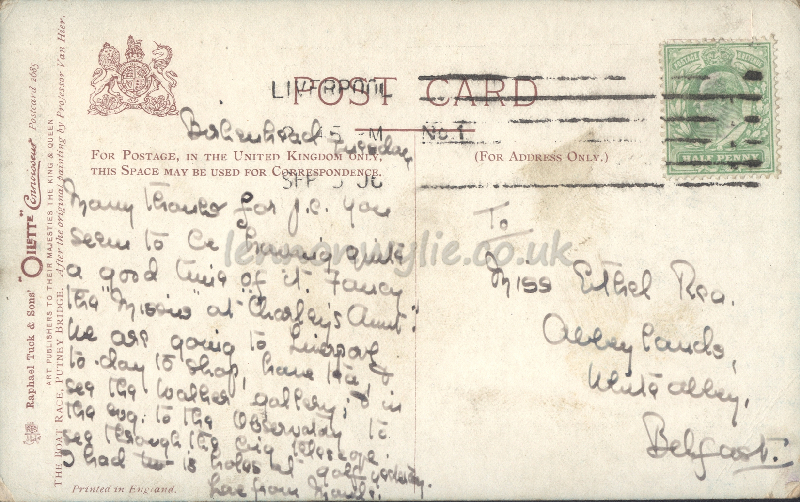 Raphael Tuck & Sons' "OILETTE" Connoisseur Postcard 2685
ART PUBLISHERS TO THEIR MAJESTIES THE KING & QUEEN
THE BOAT RACE, PUTNEY BRIDGE. After the original painting by Professor Van Hier.
LIVERPOOL
POST CARD
Birkenhead Tuesday
45 PM No. 1
POSTAGE REVENUE
HALF PENNY
FOR POSTAGE, IN THE UNITED KINGDOM ONLY,
THIS SPACE MAY BE USED FOR CORRESPONDENCE.
(FOR ADDRESS ONLY.)
SEP 5 06
Many thanks for p.c. you
seem to be having quite
a good time of it. Fancy
the "Missins at Charley's Aunt".
We are going to Liverpool
to-day to shop, have tea &
see the Walker gallery; & in
the evg. to the Observatory to
see through the big telescope.
I had two 15 holes at golf yesterday.
Love from
To
Miss Ethel Rea.
Abbeylands,
White abbey,
Belfast.
lennonwylie.co.uk
Printed in England.